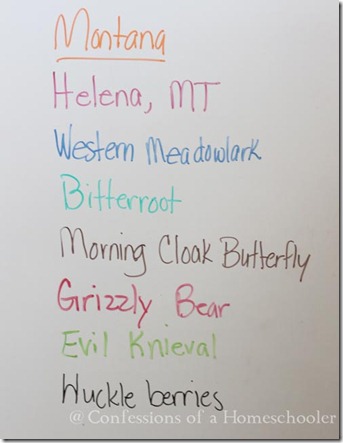 Montana
Helena, MT
Western Meadowlark
Bitterroot
Morning Cloak Butterfly
Grizzly Bear
Evil Knieval
Huckle berries
@ Confessions of a Homeschooler